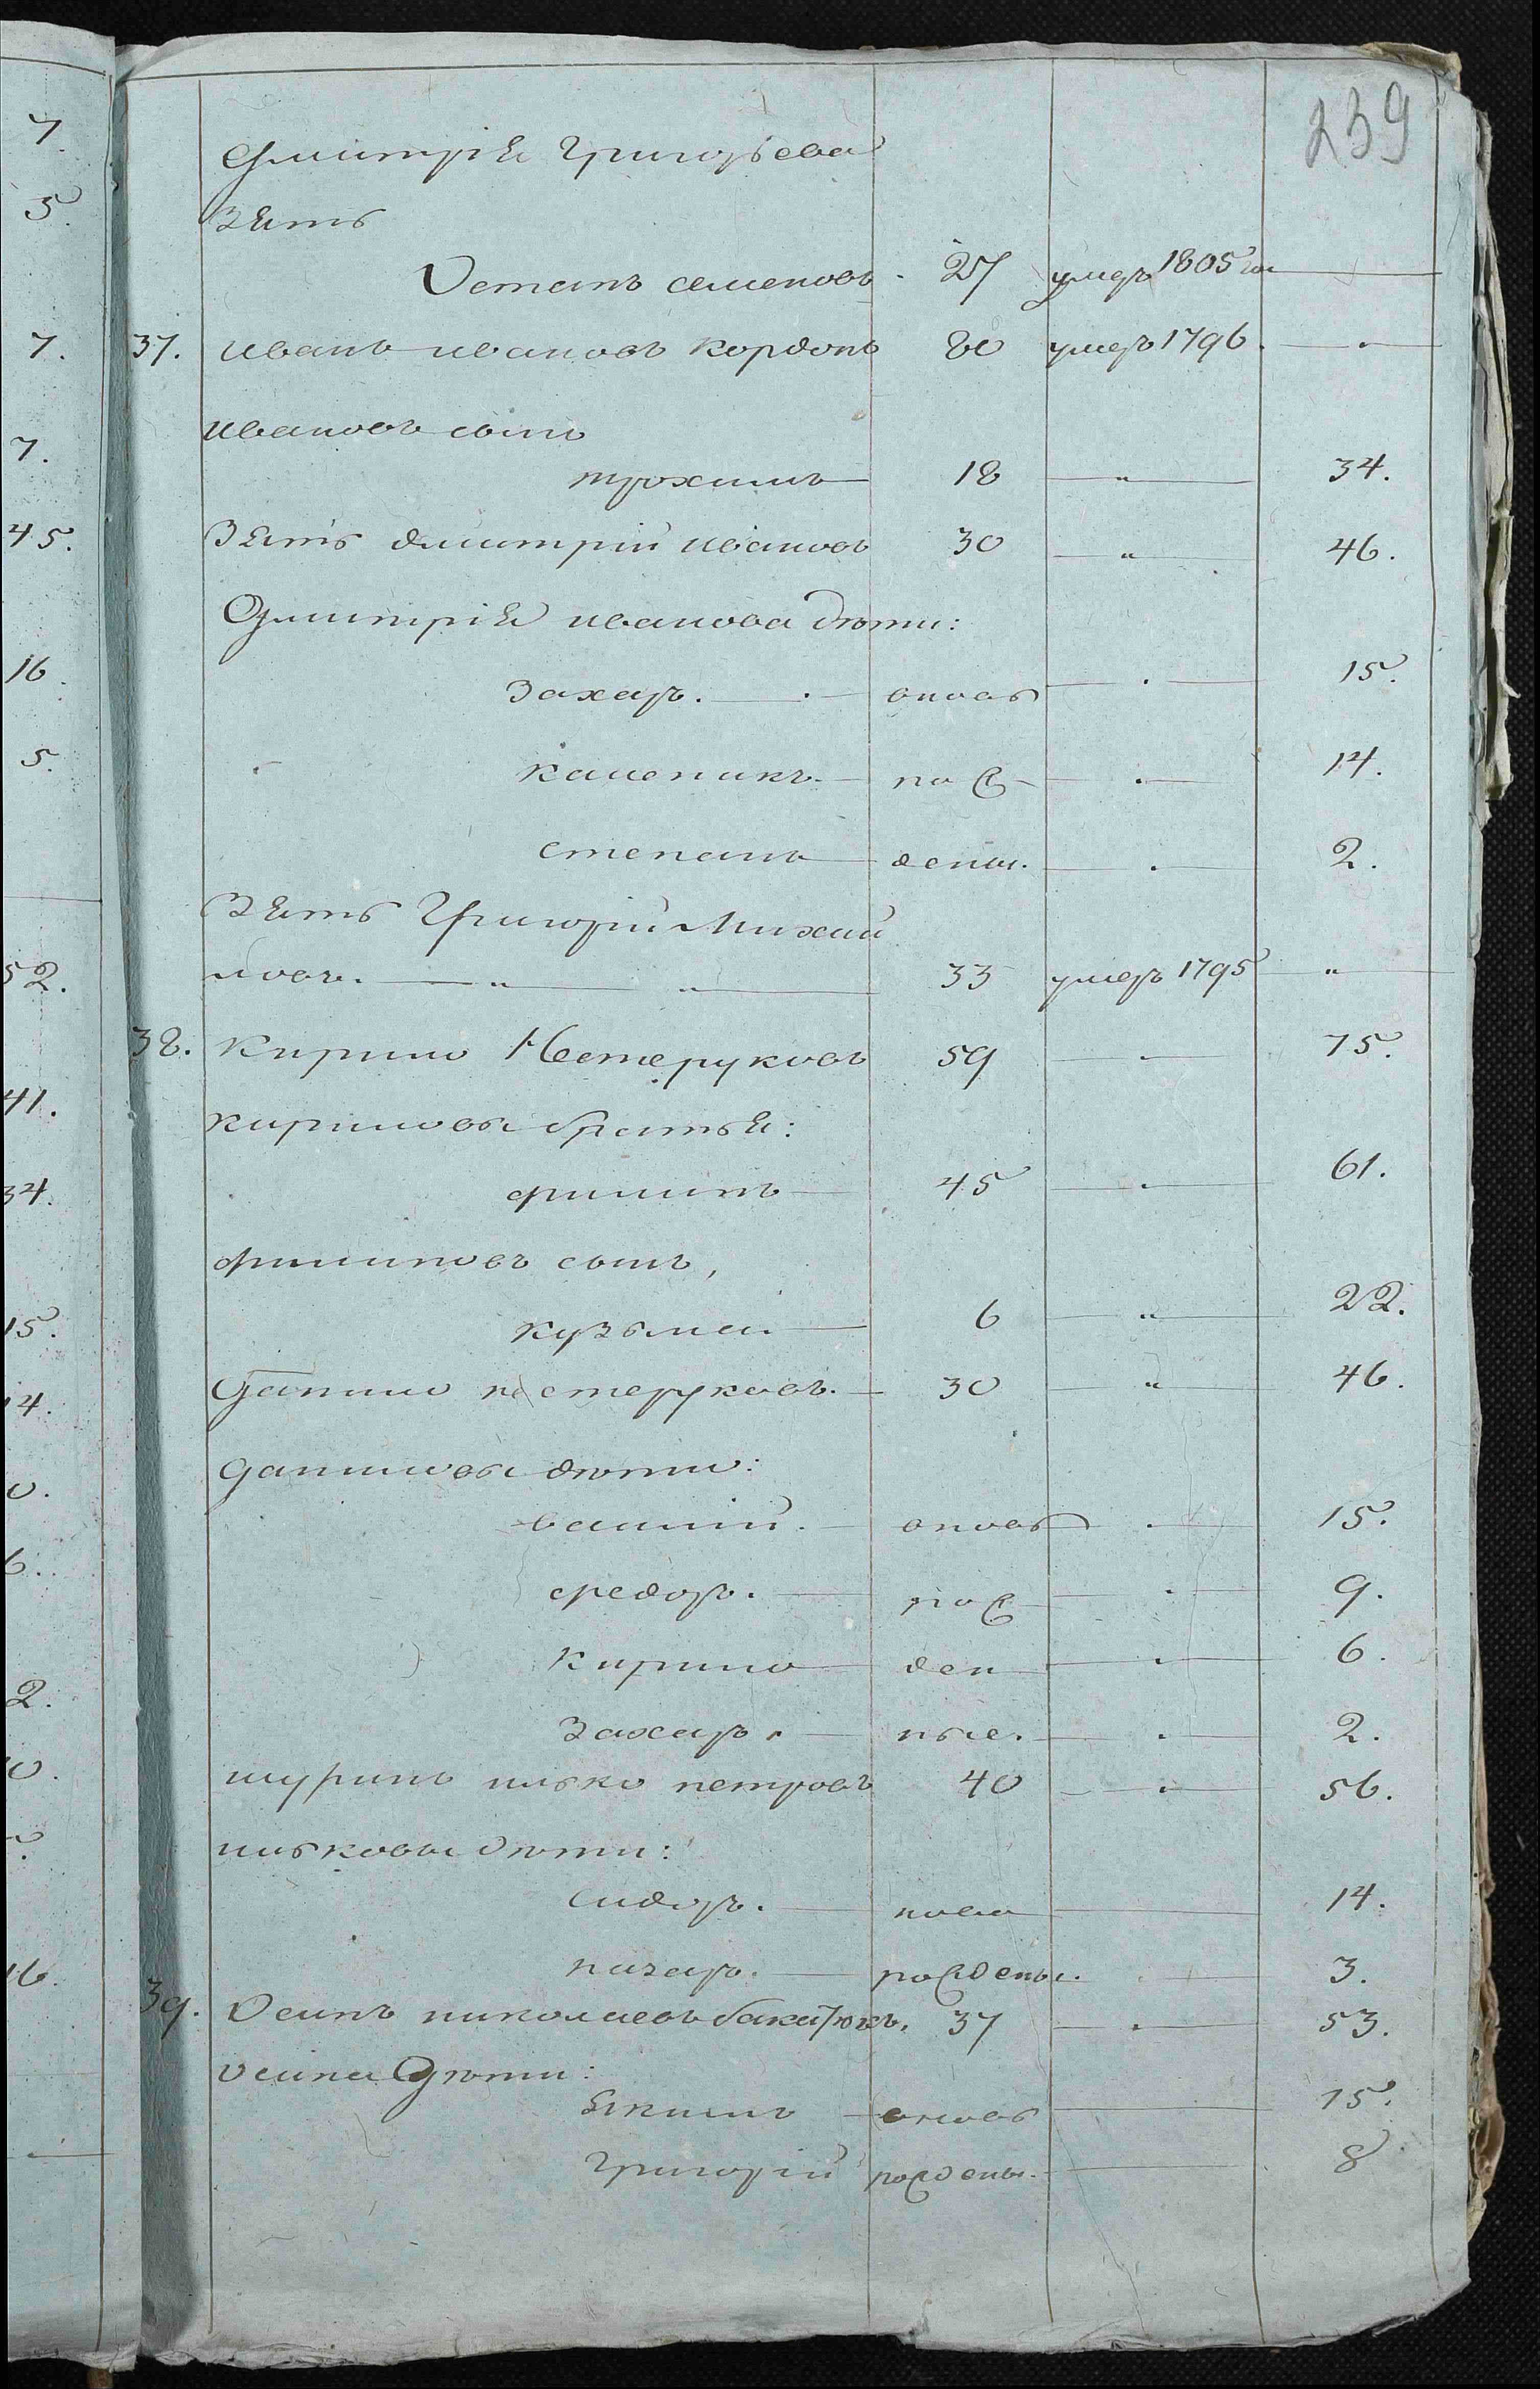 239
Дмитрія Григорьева
Зять
Остапъ семеновъ 27 умеръ 1805 го
37. иванъ ивановъ Кордонъ 80 умеръ 1796.
ивановъ сынъ
трохимъ 18 " 34.
Зять дмитрій ивановъ 30 " 46.
Дмитрія иванова дѣти:
Захаръ. вновь 15.
каленикъ. рож 14.
степанъ дены. 2.
Зять Григорій Михай
ловъ. " " 33 умеръ 1795 "
38. Кирило Нестеруковъ 59 75.
кириловы братья:
филипъ 45 61.
филиповъ сынъ,
кузьма 6 " 22.
Данило нестеруковъ. 30 " 46.
даниловы дѣти:
василій. вновь 15.
федоръ. рож 9.
Кирило ден 6.
Захаръ. ные. 2.
шуринъ илько петровъ 40 56.
ильковы дѣти:
сидоръ. ново 14.
назаръ. рождены. 3.
39. Осипъ николаевъ 37 53.
осипа Дѣти:
якимъ вновь 15.
Григорій рождены. 8
7.
5.
7.
7.
45.
16.
5.
52.
41.
34.
15.
14.
0.
6.
2.
0.
16.